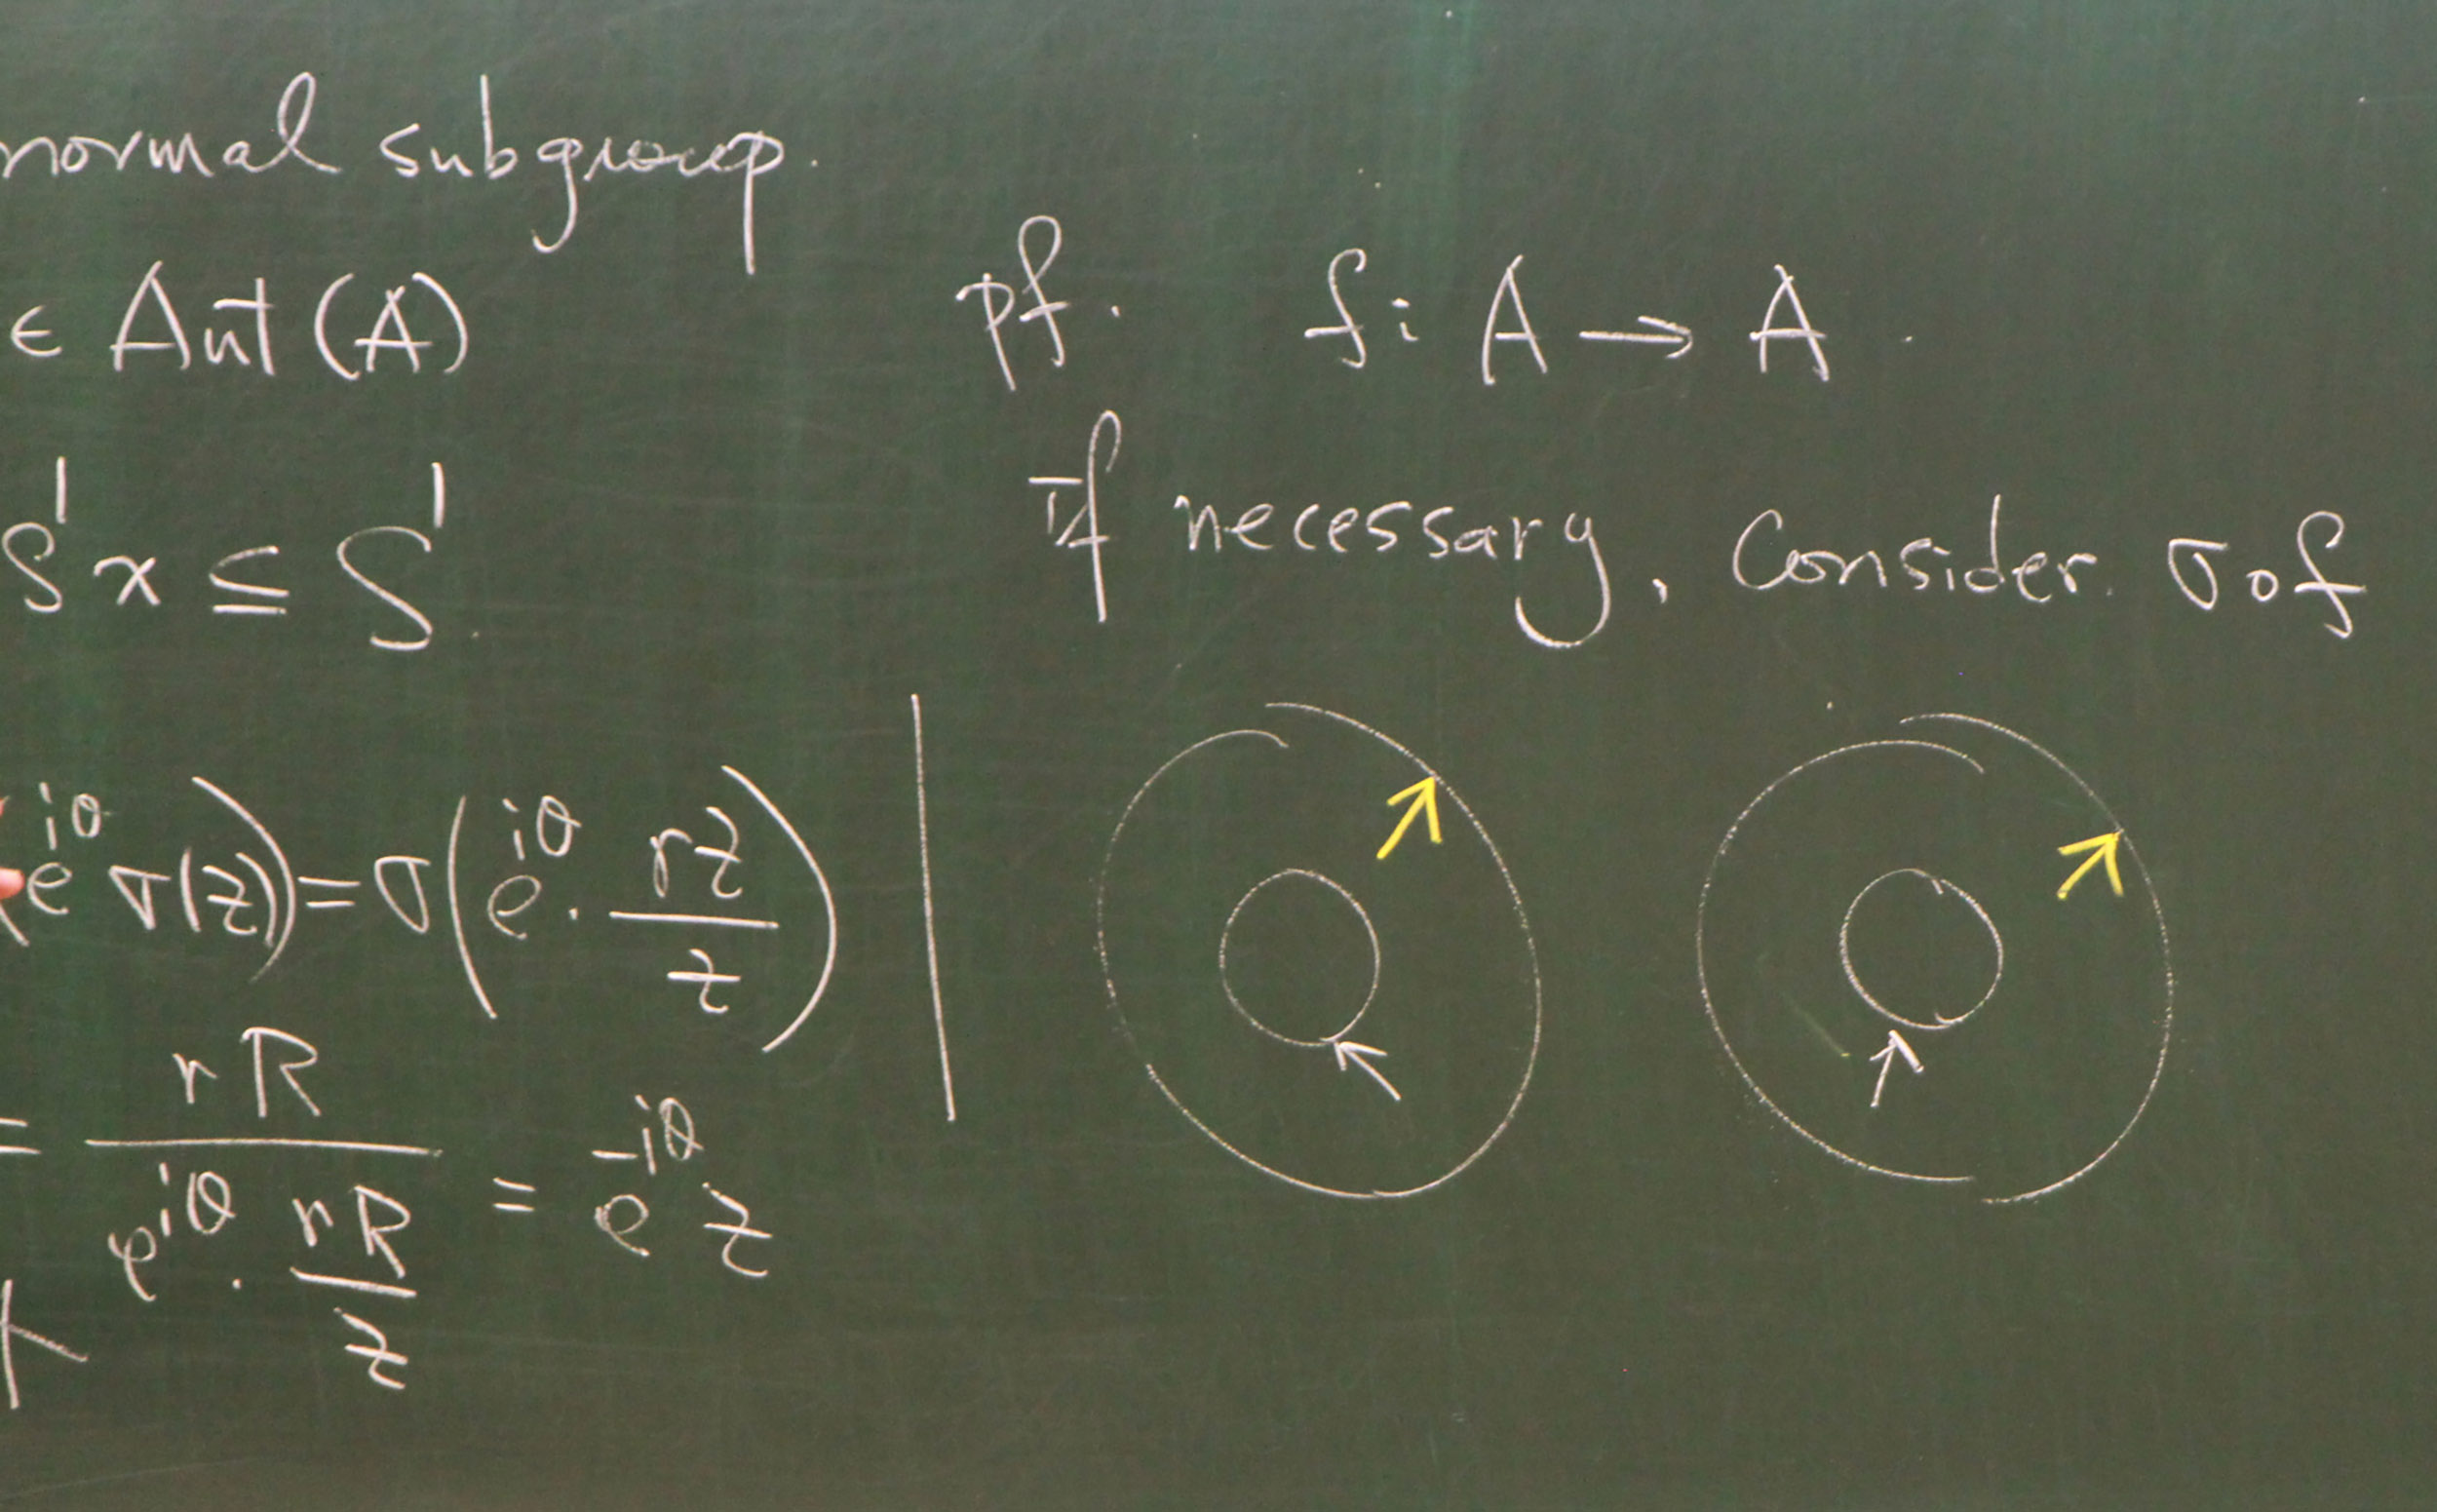 normal subgroup.
∈ Aut(A)
S¹x ⊆ S¹.
e^{iθ} σ(z)) = σ(e^{iθ} · \frac{rz}{z})
= \frac{rR}{e^{iθ} · \frac{rR}{z}} = e^{-iθ} z
pf. f: A → A.
If necessary, Consider σ∘f